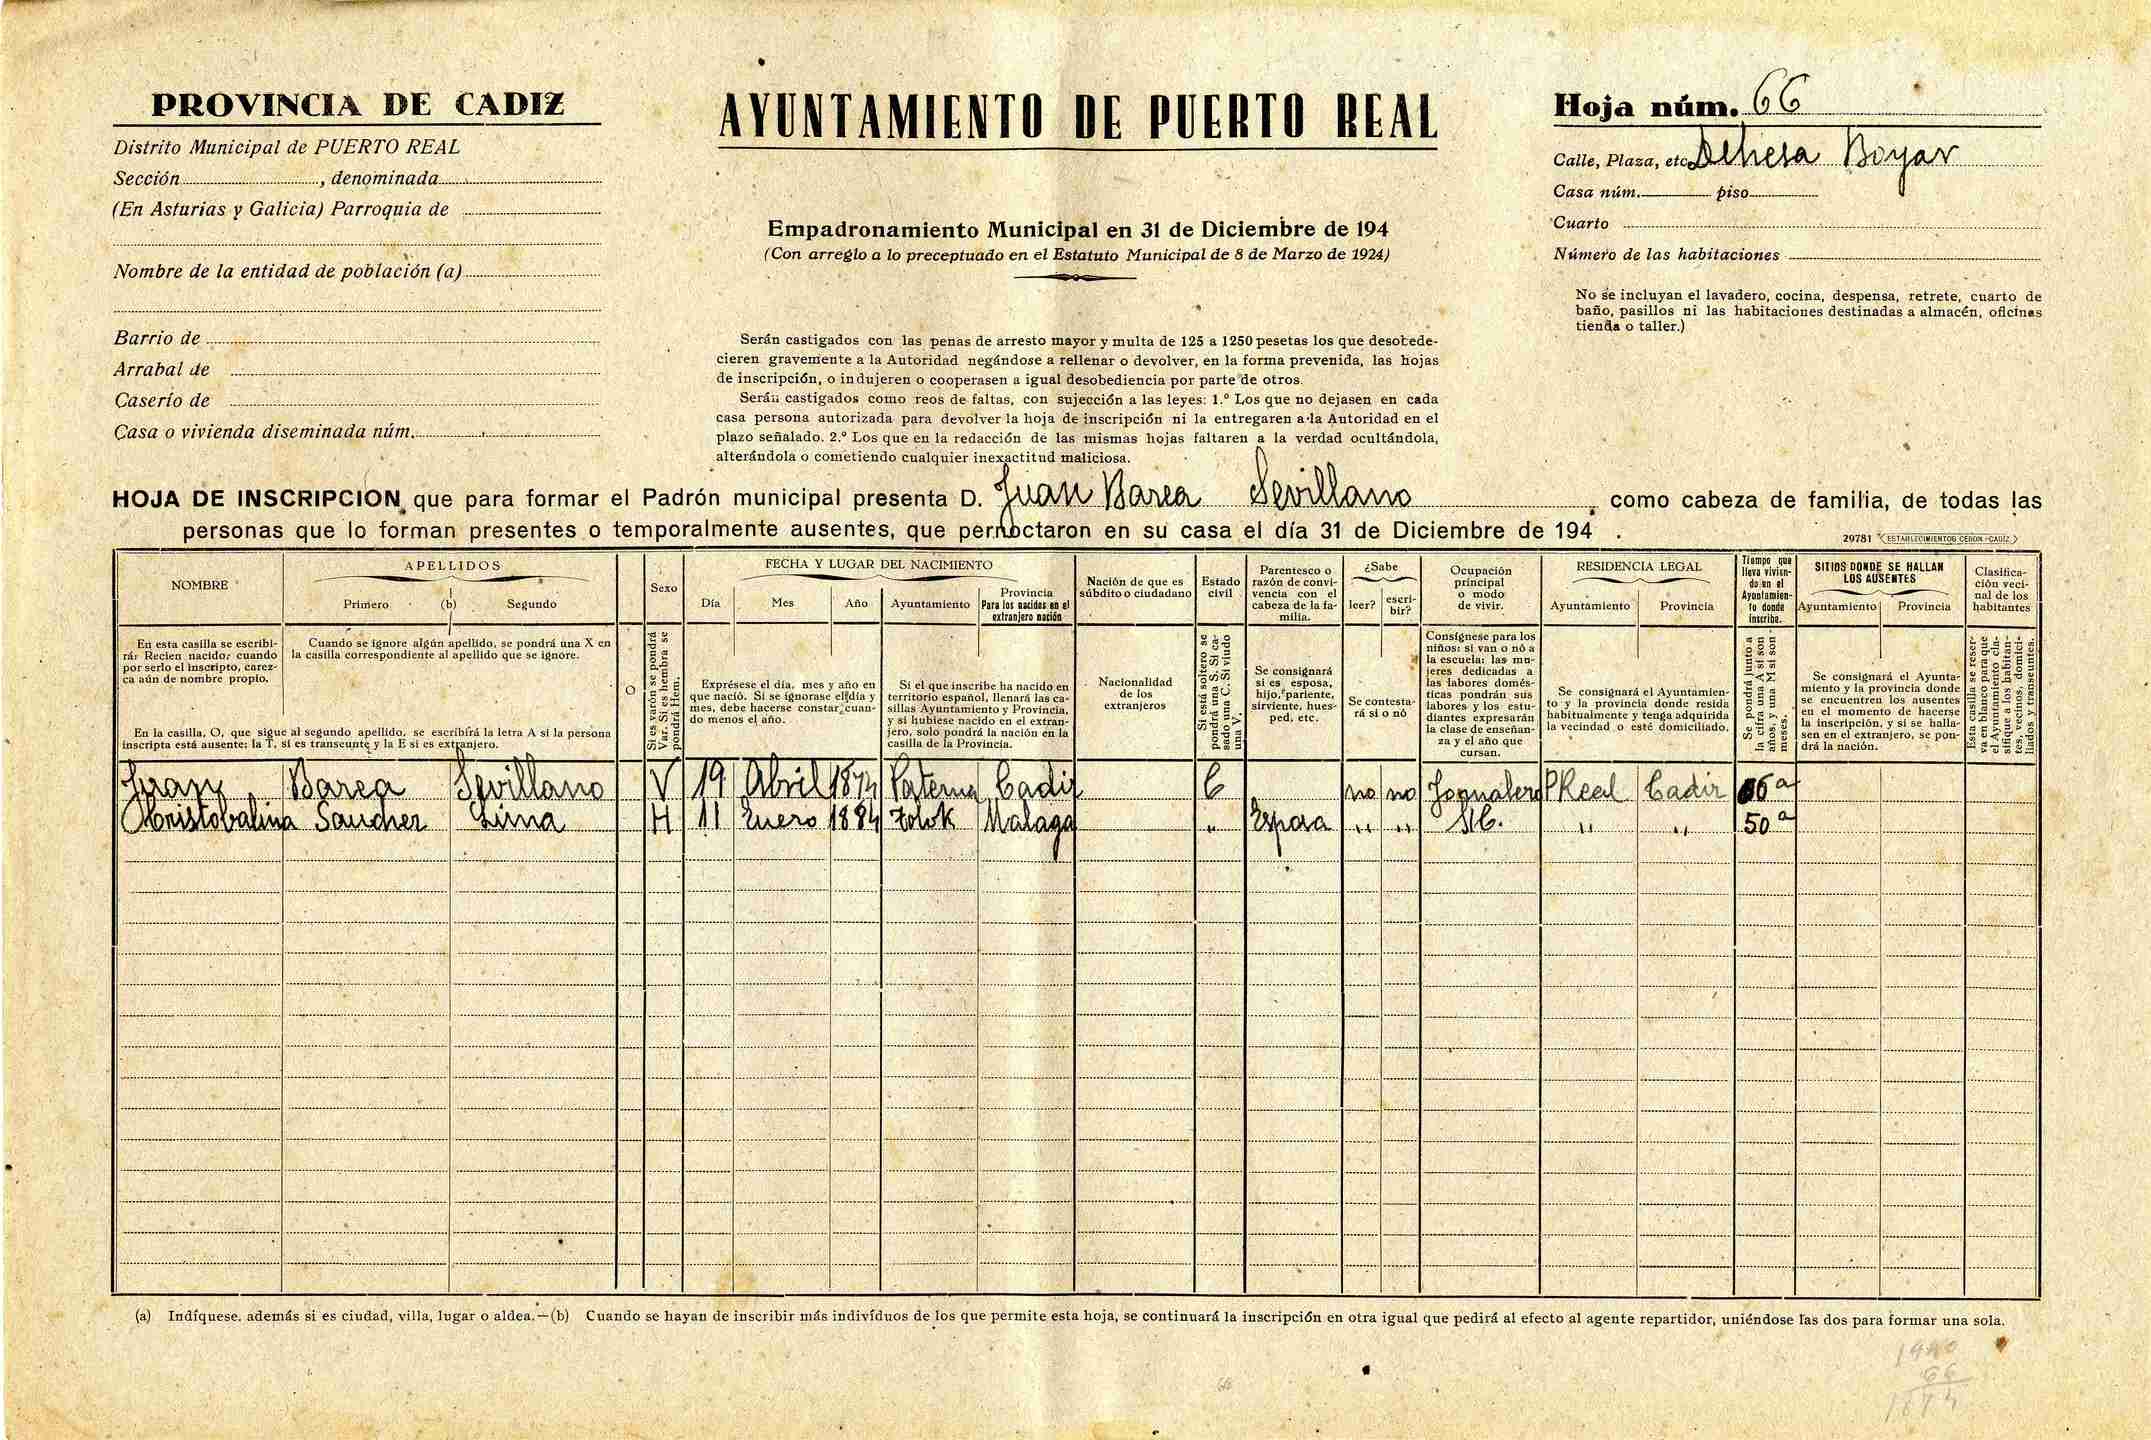 PROVINCIA DE CADIZ
Distrito Municipal de PUERTO REAL
Sección , denominada
(En Asturias y Galicia) Parroquia de
Nombre de la entidad de población (a)
Barrio de
Arrabal de
Caserío de
Casa o vivienda diseminada núm.
AYUNTAMIENTO DE PUERTO REAL
Empadronamiento Municipal en 31 de Diciembre de 194
(Con arreglo a lo preceptuado en el Estatuto Municipal de 8 de Marzo de 1924)
Serán castigados con las penas de arresto mayor y multa de 125 a 1250 pesetas los que desobede-
cieren gravemente a la Autoridad negándose a rellenar o devolver, en la forma prevenida, las hojas
de inscripción, o indujeren o cooperasen a igual desobediencia por parte de otros.
Serán castigados como reos de faltas, con sujección a las leyes: 1.º Los que no dejasen en cada
casa persona autorizada para devolver la hoja de inscripción ni la entregaren a la Autoridad en el
plazo señalado. 2.º Los que en la redacción de las mismas hojas faltaren a la verdad ocultándola,
alterándola o cometiendo cualquier inexactitud maliciosa.
Hoja núm. 66
Calle, Plaza, etc. Dehesa Boyar
Casa núm. piso
Cuarto
Número de las habitaciones
No se incluyan el lavadero, cocina, despensa, retrete, cuarto de
baño, pasillos ni las habitaciones destinadas a almacén, oficinas
tienda o taller.)
HOJA DE INSCRIPCION que para formar el Padrón municipal presenta D. Juan Barea Sevillano , como cabeza de familia, de todas las
personas que lo forman presentes o temporalmente ausentes, que pernoctaron en su casa el día 31 de Diciembre de 194 .
29781 ESTABLECIMIENTOS CERON-CADIZ
NOMBRE
APELLIDOS
Primero (b) Segundo
Sexo
FECHA Y LUGAR DEL NACIMIENTO
Día Mes Año Ayuntamiento
Provincia
Para los nacidos en el
extranjero nación
Nación de que es
súbdito o ciudadano
Estado
civil
Parentesco o
razón de convi-
vencia con el
cabeza de la fa-
milia.
¿Sabe
leer? escri-
bir?
Ocupación
principal
o modo
de vivir.
RESIDENCIA LEGAL
Ayuntamiento Provincia
Tiempo que
lleva vivien-
do en el
Ayuntamien-
to donde
inscribe.
SITIOS DONDE SE HALLAN
LOS AUSENTES
Ayuntamiento Provincia
Clasifica-
ción veci-
nal de los
habitantes
En esta casilla se escribi-
rá: Recien nacido: cuando
por serlo el inscripto, carez-
ca aún de nombre propio.
Cuando se ignore algún apellido, se pondrá una X en
la casilla correspondiente al apellido que se ignore.
En la casilla, O, que sigue al segundo apellido, se escribirá la letra A si la persona
inscripta está ausente: la T, si es transeunte y la E si es extranjero.
O
Si es varón se pondrá
Var. Si es hembra se
pondrá Hem.
Exprésese el día, mes y año en
que nació. Si se ignorase el día y
mes, debe hacerse constar, cuan-
do menos el año.
Si el que inscribe ha nacido en
territorio español, llenará las ca-
sillas Ayuntamiento y Provincia,
y si hubiese nacido en el extran-
jero, solo pondrá la nación en la
casilla de la Provincia.
Nacionalidad
de los
extranjeros
Si está soltero se
pondrá una S. Si ca-
sado una C. Si viudo
una V.
Se consignará
si es esposa,
hijo, pariente,
sirviente, hues-
ped, etc.
Se contesta-
rá si o nó
Consígnese para los
niños: si van o nó a
la escuela: las mu-
jeres dedicadas a
las labores domés-
ticas pondrán sus
labores y los estu-
diantes expresarán
la clase de enseñan-
za y el año que
cursan.
Se consignará el Ayuntamien-
to y la provincia donde resida
habitualmente y tenga adquirida
la vecindad o esté domiciliado.
Se pondrá junto a
la cifra una A si son
años, y una M si son
meses.
Se consignará el Ayunta-
miento y la provincia donde
se encuentren los ausentes
en el momento de hacerse
la inscripción, y si se halla-
sen en el extranjero, se pon-
drá la nación.
Esta casilla se reser-
va en blanco para que
el Ayuntamiento cla-
sifique a los habitan-
tes, vecinos, domici-
liados y transeuntes.
Juan Barea Sevillano V 19 Abril 1874 Paterna Cadiz C no no Jornalero P Real Cadiz 66 a
Cristobalina Sanchez Lima H 11 Enero 1884 Malaga " Esposa " " " " 50 a
(a) Indíquese, además si es ciudad, villa, lugar o aldea.—(b) Cuando se hayan de inscribir más indivíduos de los que permite esta hoja, se continuará la inscripción en otra igual que pedirá al efecto al agente repartidor, uniéndose las dos para formar una sola.
1940
66
1874